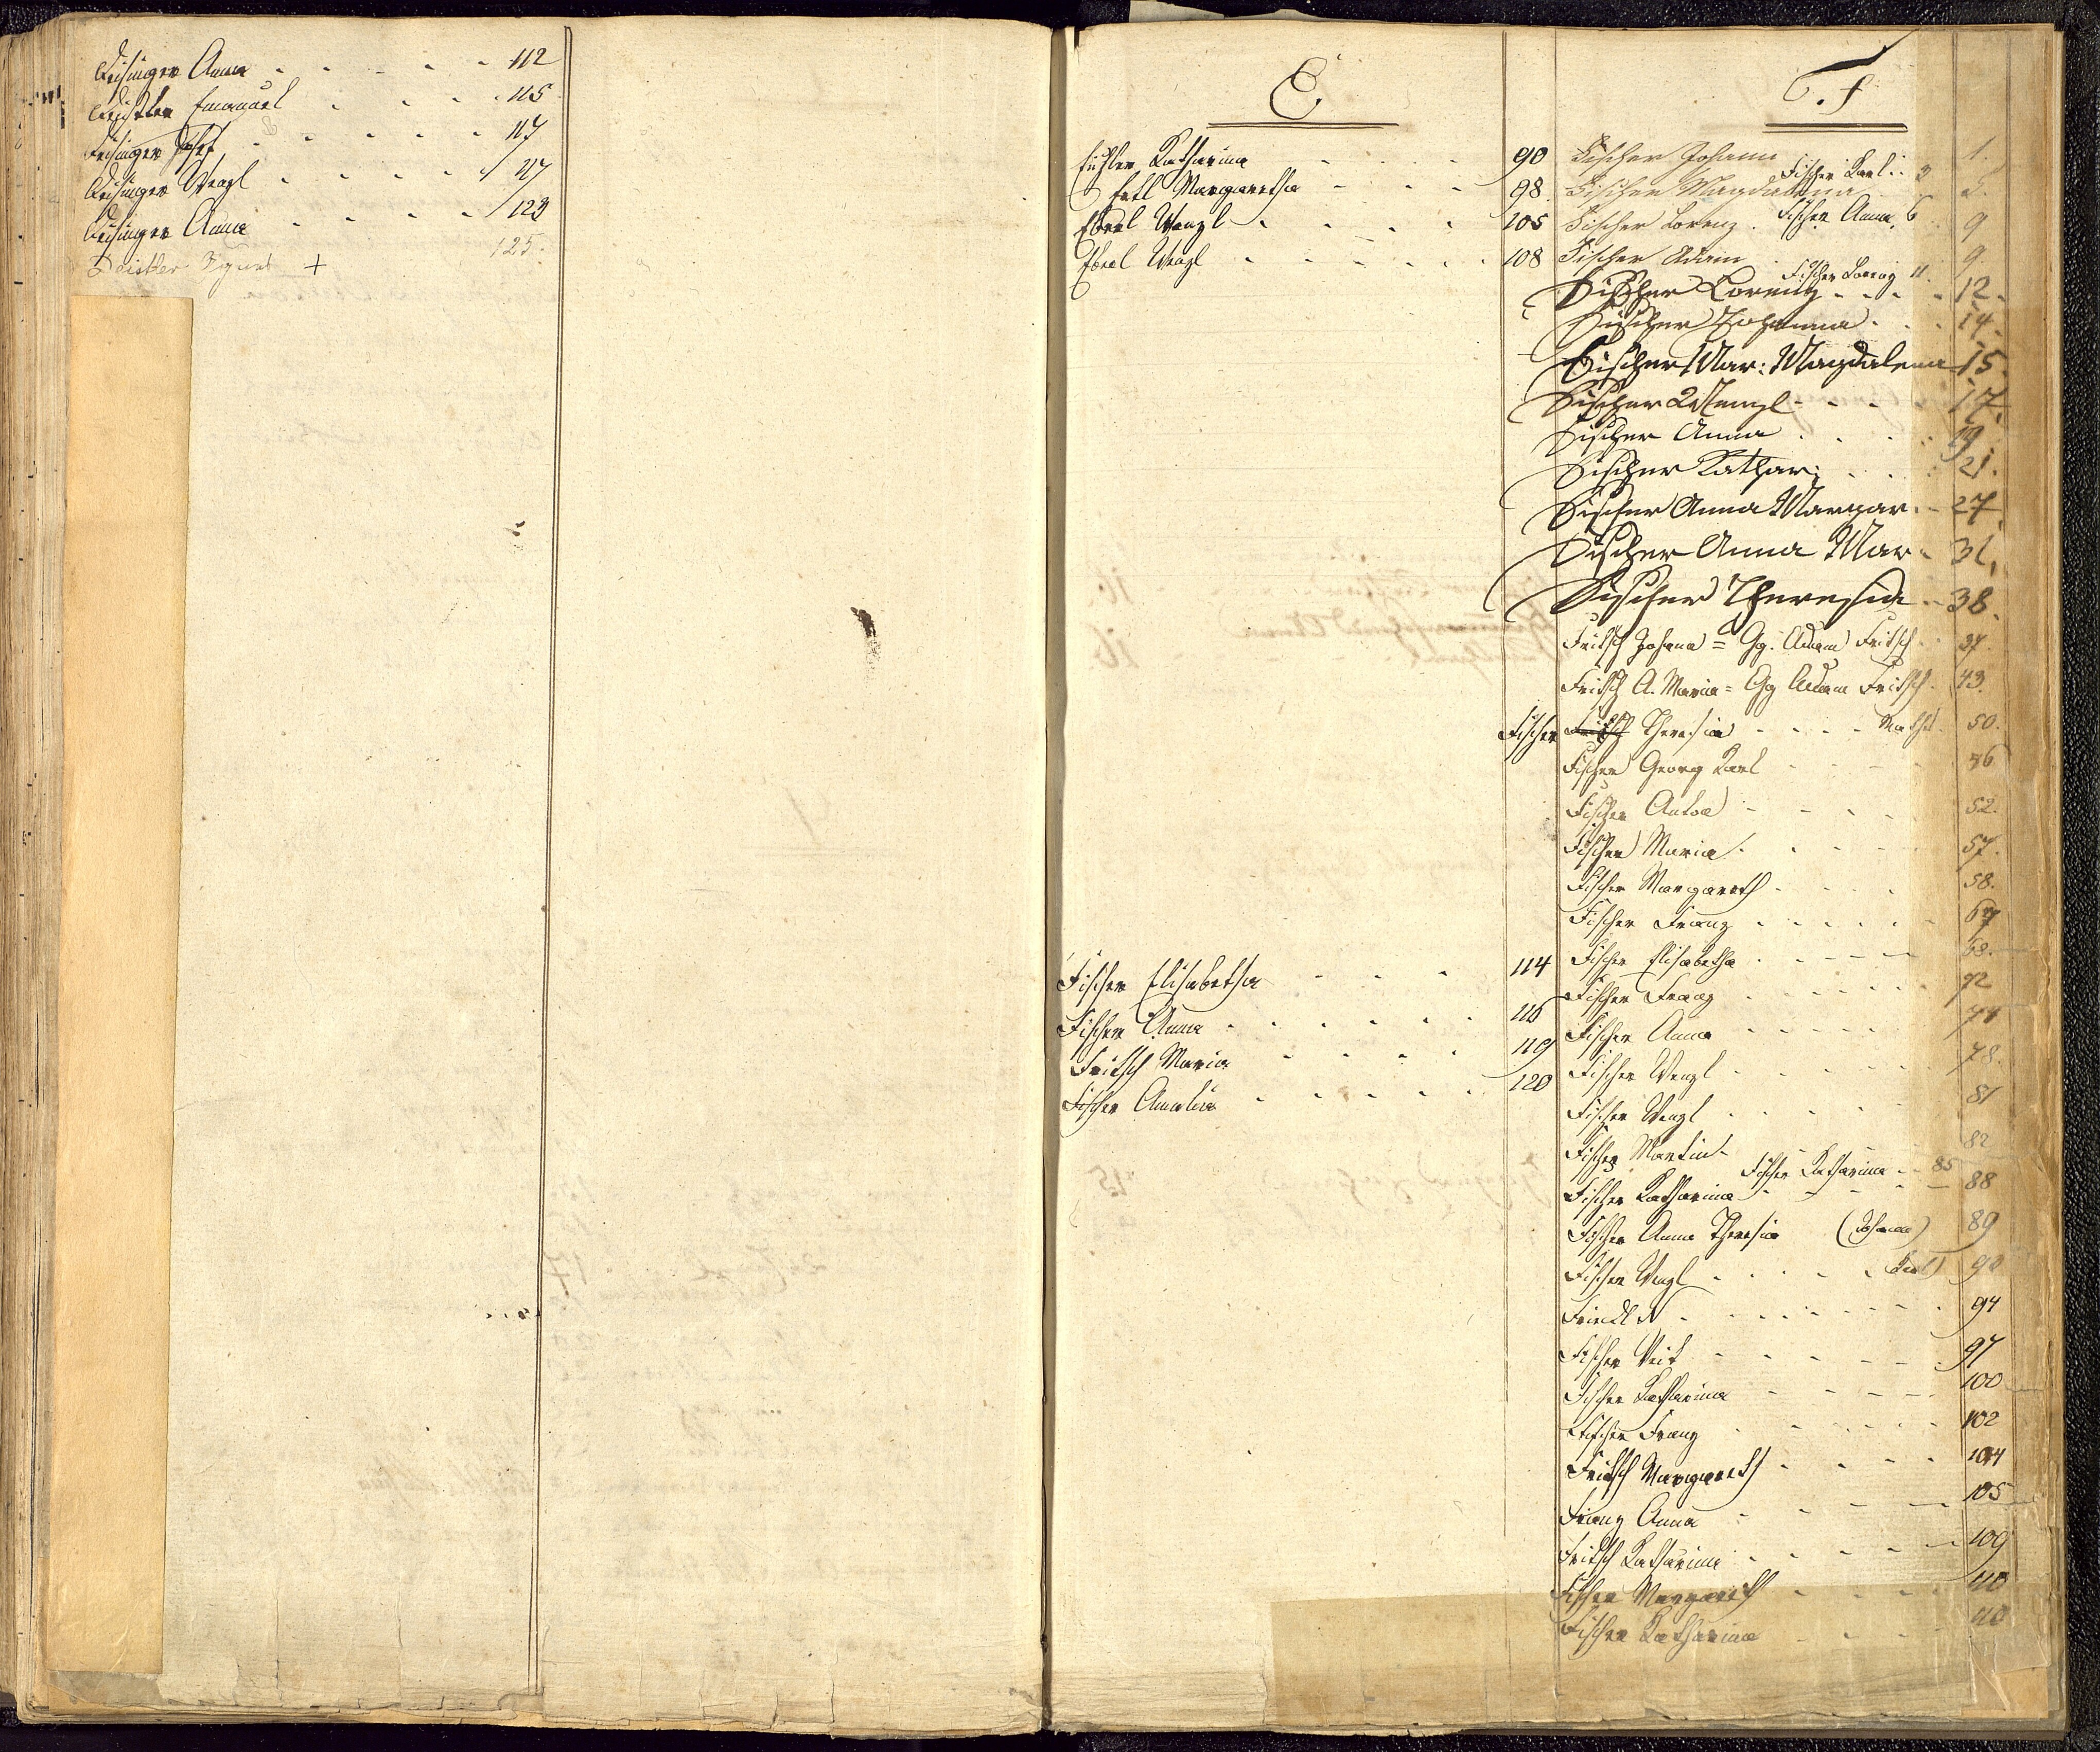 Deisinger Anna - - - - - 112
Deistler Emanuel - - - - 115
Deisinger Josef - - - - - 117
Deisinger Wenzl - - - - - 117
Deisinger Anna - - - - 123
Deistler Ignat + 125.
E
Katharina - - - - 90
Margaretha - - - 98
Eberl Wenzl - - - - 105
Eberl Wenzl - - - - - 108
Fischer Elisabetha - - - 114
Fischer Anna - - - - - 116
Fritsch Maria - - - - 119
Fischer Amalia - - - - - 120
F
Fischer Johann 1.
Fischer Karl 3
Fischer Magdalena 2.
Fischer Lorenz . Fischer Anna 6 9
Fischer Adam 9.
Fischer Lorenz 11.
Fischer Lorenz - - - - 12.
Fischer Johanna - - - 14.
Fischer Mar: Magdalena 15.
Fischer Wenzl - - - 17.
Fischer Anna . . . . 19.
Fischer Kathar: . . . 21.
Fischer Anna Margar - 27.
Fischer Anna Mar - 31.
Fischer Theresia - 38.
Fritsch Johann = Gg. Adam Fritsch 37.
Fritsch A. Maria = Gg Adam Fritsch. 43.
Fischer Fritsch Theresia - - - - 50.
Fischer Georg Karl - - - - 56
Fischer Anton - - - - 52.
Fischer Maria . . . . 57.
Fischer Margareth - - - 58.
Fischer Franz - - - - - 67
Fischer Elisabetha - - - - - 68.
Fischer Franz - - - - - - 72
Fischer Anna - - - - - 77
Fischer Wenzl - - - - - - 78.
Fischer Wenzl - - - - - 81
Fischer Martin - 82
Fischer Katharina - - 85
Fischer Katharina - - - - - 88
Fischer Anna Theresia (Johann) 89
Fischer Wenzl - - - - Karl) 90
Friedl N - - - - - - - 94
Fischer Veit - - - - - - 97
Fischer Katharina - - - - - 100
Fischer Franz - - - - - - 102
Fritsch Margareth - - - - 104
Franz Anna - - - - - 105
Fritsch Katharina - - - - - 109
Fischer Margareth - - - 110
Fischer Katharina - - - - 110